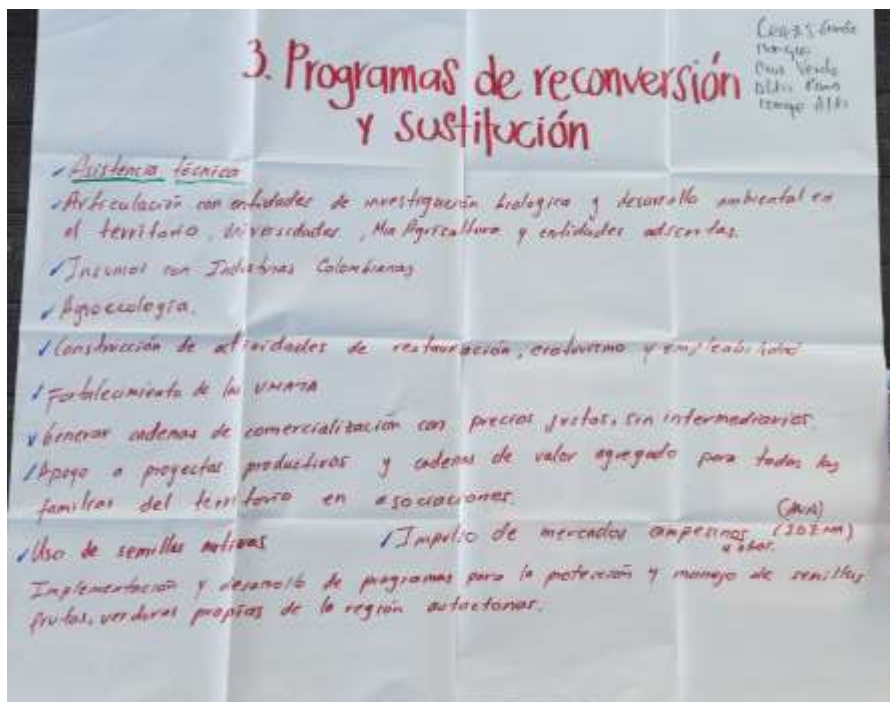 3. Programas de reconversión
y sustitución
Cruz Verde
✓ Asistencia técnica
✓ Articulación con entidades de investigación biologica y desarrollo ambiental en
el territorio, Universidades, Min Agricultura y entidades adscritas.
✓ Insumos con Industrias Colombianas
✓ Agroecología.
✓ Construcción de actividades de restauración, ecoturismo y empleabilidad
✓ Fortalecimiento de las UMATA
✓ Generar cadenas de comercialización con precios justos, sin intermediarios.
✓ Apoyo a proyectos productivos y cadenas de valor agregado para todas las
familias del territorio en asociaciones.
✓ Uso de semillas nativas ✓ Impulso de mercados campesinos
Implementación y desarrollo de programas para la protección y manejo de semillas
frutas, verduras propias de la región autoctonas.